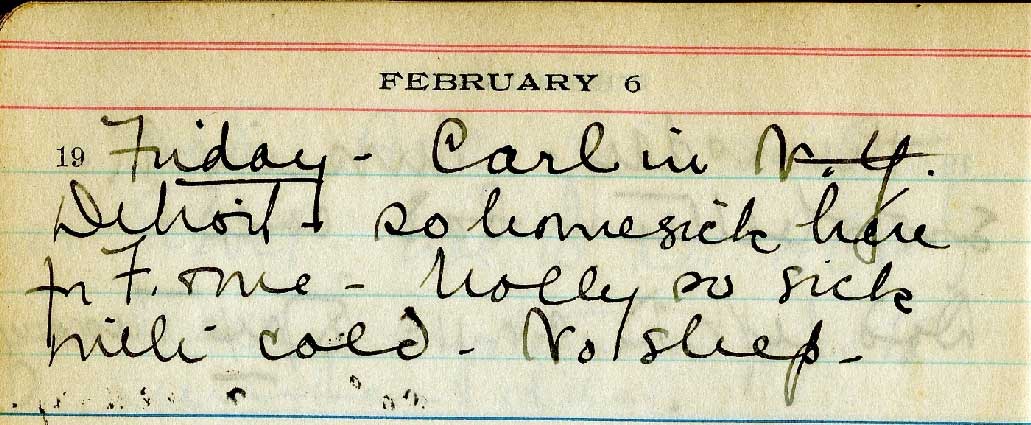 FEBRUARY 6
19 Friday - Carl in N.Y.
Detroit - so homesick here
for F. & me - Molly so sick
with cold - No sleep -